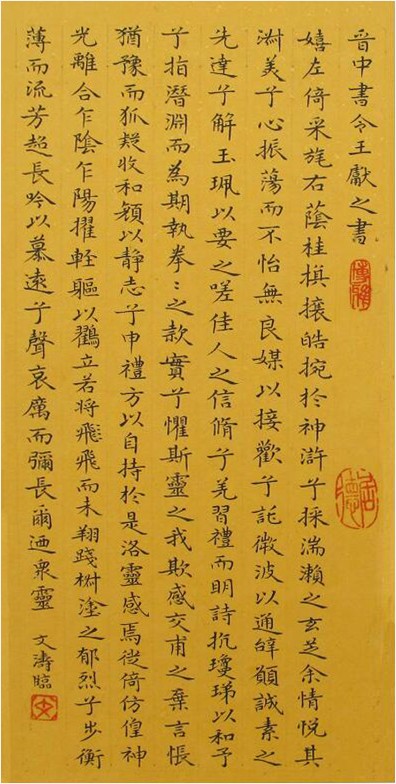 晋中書令王獻之書
嬉左倚采旄右蔭桂旗攘皓捥於神滸兮採湍瀨之玄芝余情悦其
淑美兮心振蕩而不怡無良媒以接歡兮託微波以通辝願誠素之
先達兮解玉珮以要之嗟佳人之信脩兮羌習禮而明詩抗瓊珶以和予
兮指潛淵而為期執拳〻之款實兮懼斯靈之我欺感交甫之棄言悵
猶豫而狐疑收和顏以静志兮申禮方以自持於是洛靈感焉徙倚仿偟神
光離合乍陰乍陽擢輕軀以鶴立若将飛飛而未翔踐椒塗之郁烈兮步衡
薄而流芳超長吟以慕遠兮聲哀厲而彌長爾迺衆靈
文濤臨
文